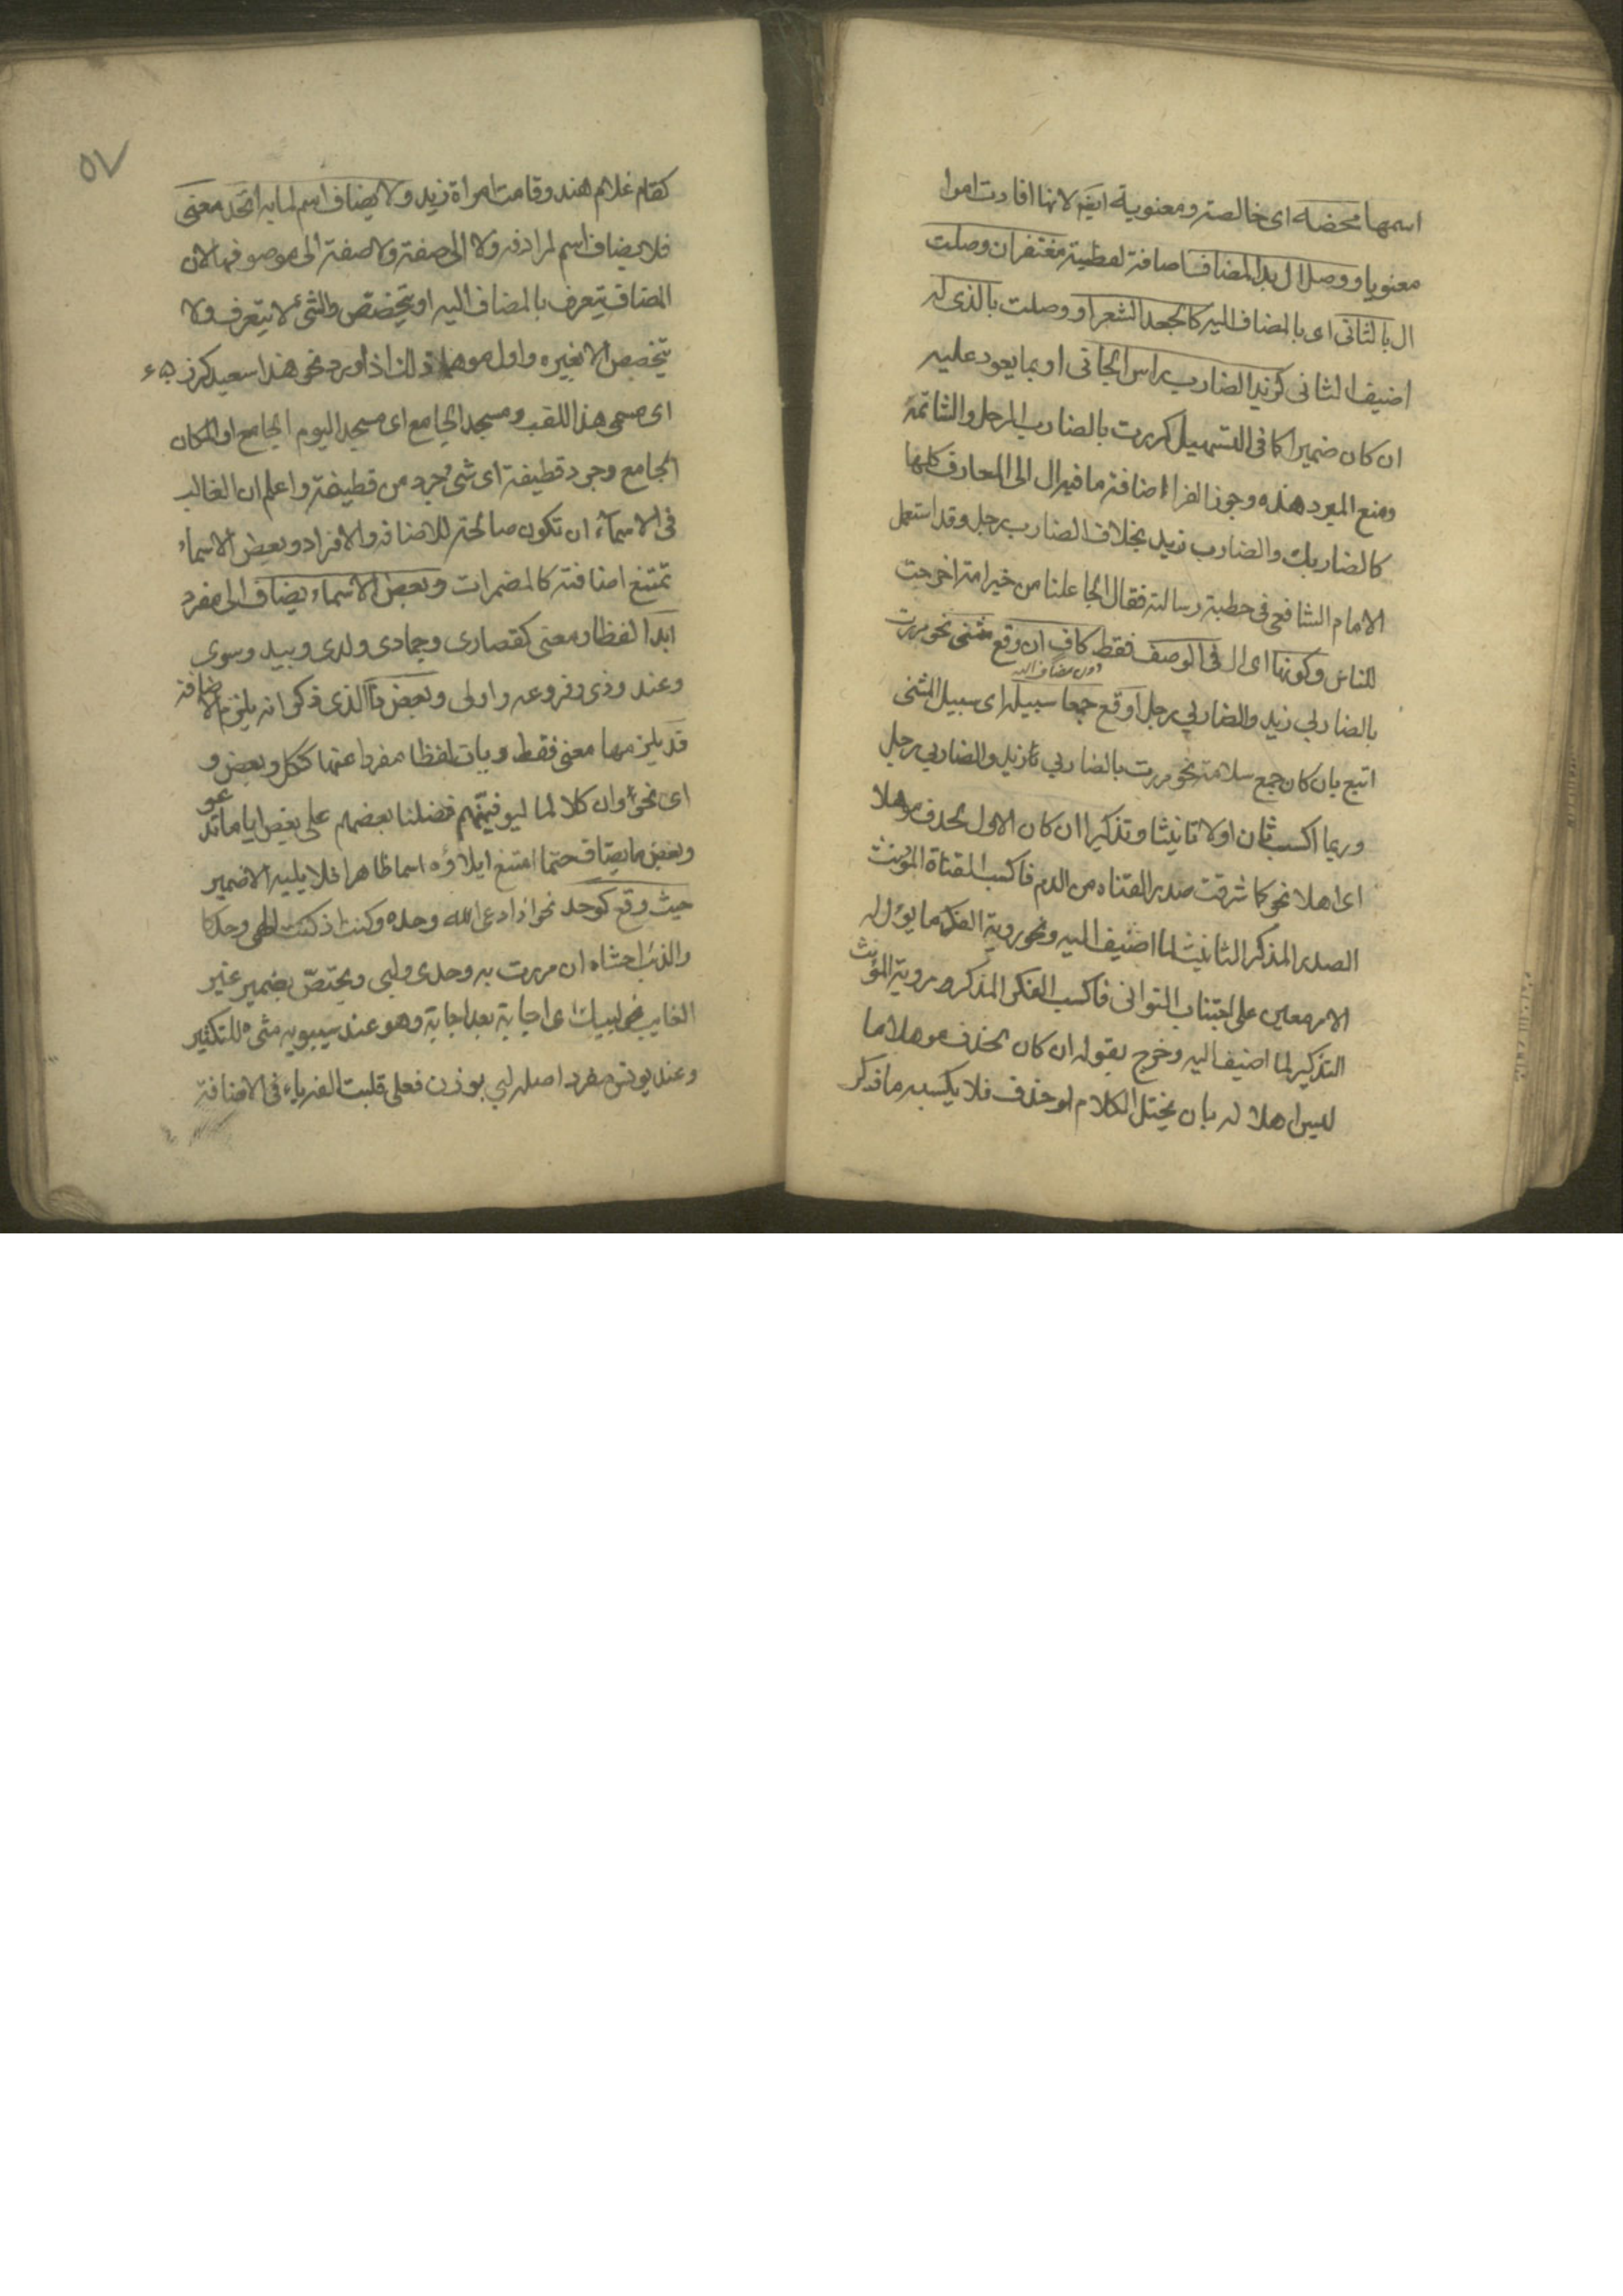 اسمها محضه اى خالصة ومعنوية ايضا لانها افادت امرا
معنويا ووصل ال بذا المضاف اضافة لفظية مغتفر ان وصلت
ال بالثانى اى بالمضاف اليه كالجعد الشعر او وصلت بالذى له
اضيف الثانى كزيد الضارب راس الجانى او بما يعود عليه
ان كان ضميرا كما فى التسهيل كمررت بالضارب الرجل والشاتمه
ومنع المبرد هذه وجوز الفراء اضافة ما فيه ال الى المعارف كلها
كالضاربك والضارب زيد بخلاف الضارب رجل وقد استعمل
الامام الشافعى فى خطبة رسالته فقال الجاعلنا من خير امة اخرجت
للناس وكونها اى ال فى الوصف فقط كاف ان وقع مثنى نحو مررت
دون مضاف اليه
بالضاربى زيد والضاربى رجل او وقع جمعا سبيله اى سبيل المثنى
اتبع بان كان جمع سلامة نحو مررت بالضاربى زيد والضاربى رجل
وربما اكسب ثان اولا تانيثا وتذكيرا ان كان الاول لحذف موهلا
اى اهلا نحو كما شرقت صدر القناه من الدم فاكسب القناة المؤنث
الصدر المذكر التانيث لما اضيف اليه ونحو روية الفكر ما يؤل له
الامر معين على اجتناب التوانى فاكسب الفكر المذكر روية المؤنث
التذكير لما اضيف اليه وخرج بقوله ان كان لحذف موهلا ما
ليس اهلا له بان يختل الكلام لو حذف فلا يكسبه ما ذكر
٥٧
كقام غلام هند وقامت امراة زيد ولا يضاف اسم لما به اتحد معنى
فلا يضاف اسم لمرادفه ولا الى صفته ولا صفة الى موصوفها لان
المضاف يتعرف بالمضاف اليه او يتخصص والشئ لا يتعرف ولا
يتخصص الا بغيره واول موهما ذلك اذا ورد نحو هذا سعيد كرز
اى مسمى هذا اللقب ومسجد الجامع اى مسجد اليوم الجامع او المكان
الجامع وجرد قطيفة اى شى جرد من قطيفة واعلم ان الغالب
فى الاسماء ان تكون صالحة للاضافة والافراد وبعض الاسماء
تمتنع اضافته كالمضمرات وبعض الاسماء يضاف الى مفرد
ابدا لفظا ومعنى كقصارى وحمادى ولدى وبيد وسوى
وعند وذى وفروعه واولى وبعض ذا الذى ذكر انه يلزم الاضافة
قد يلزمها معنى فقط ويات لفظا مفردا عنها ككل وبعض و
اى نحو وان كلا لما ليوفينهم فضلنا بعضهم على بعض ايا ما تدعو
وبعض ما يضاف حتما امتنع ايلاؤه اسما ظاهرا فلا يليه الا ضمير
حيث وقع كوحد نحو اذا دعى الله وحده وكنت اذ كنت الهى وحدكا
والذئب اخشاه ان مررت به وحدى ولبى ويختص بضمير غير
الغايب نحو لبيك اى اجابة بعد اجابة وهو عند سيبويه مثنى للتكثير
وعند يونس مفرد اصله لبى بوزن فعلى قلبت الفه ياء فى الاضافة